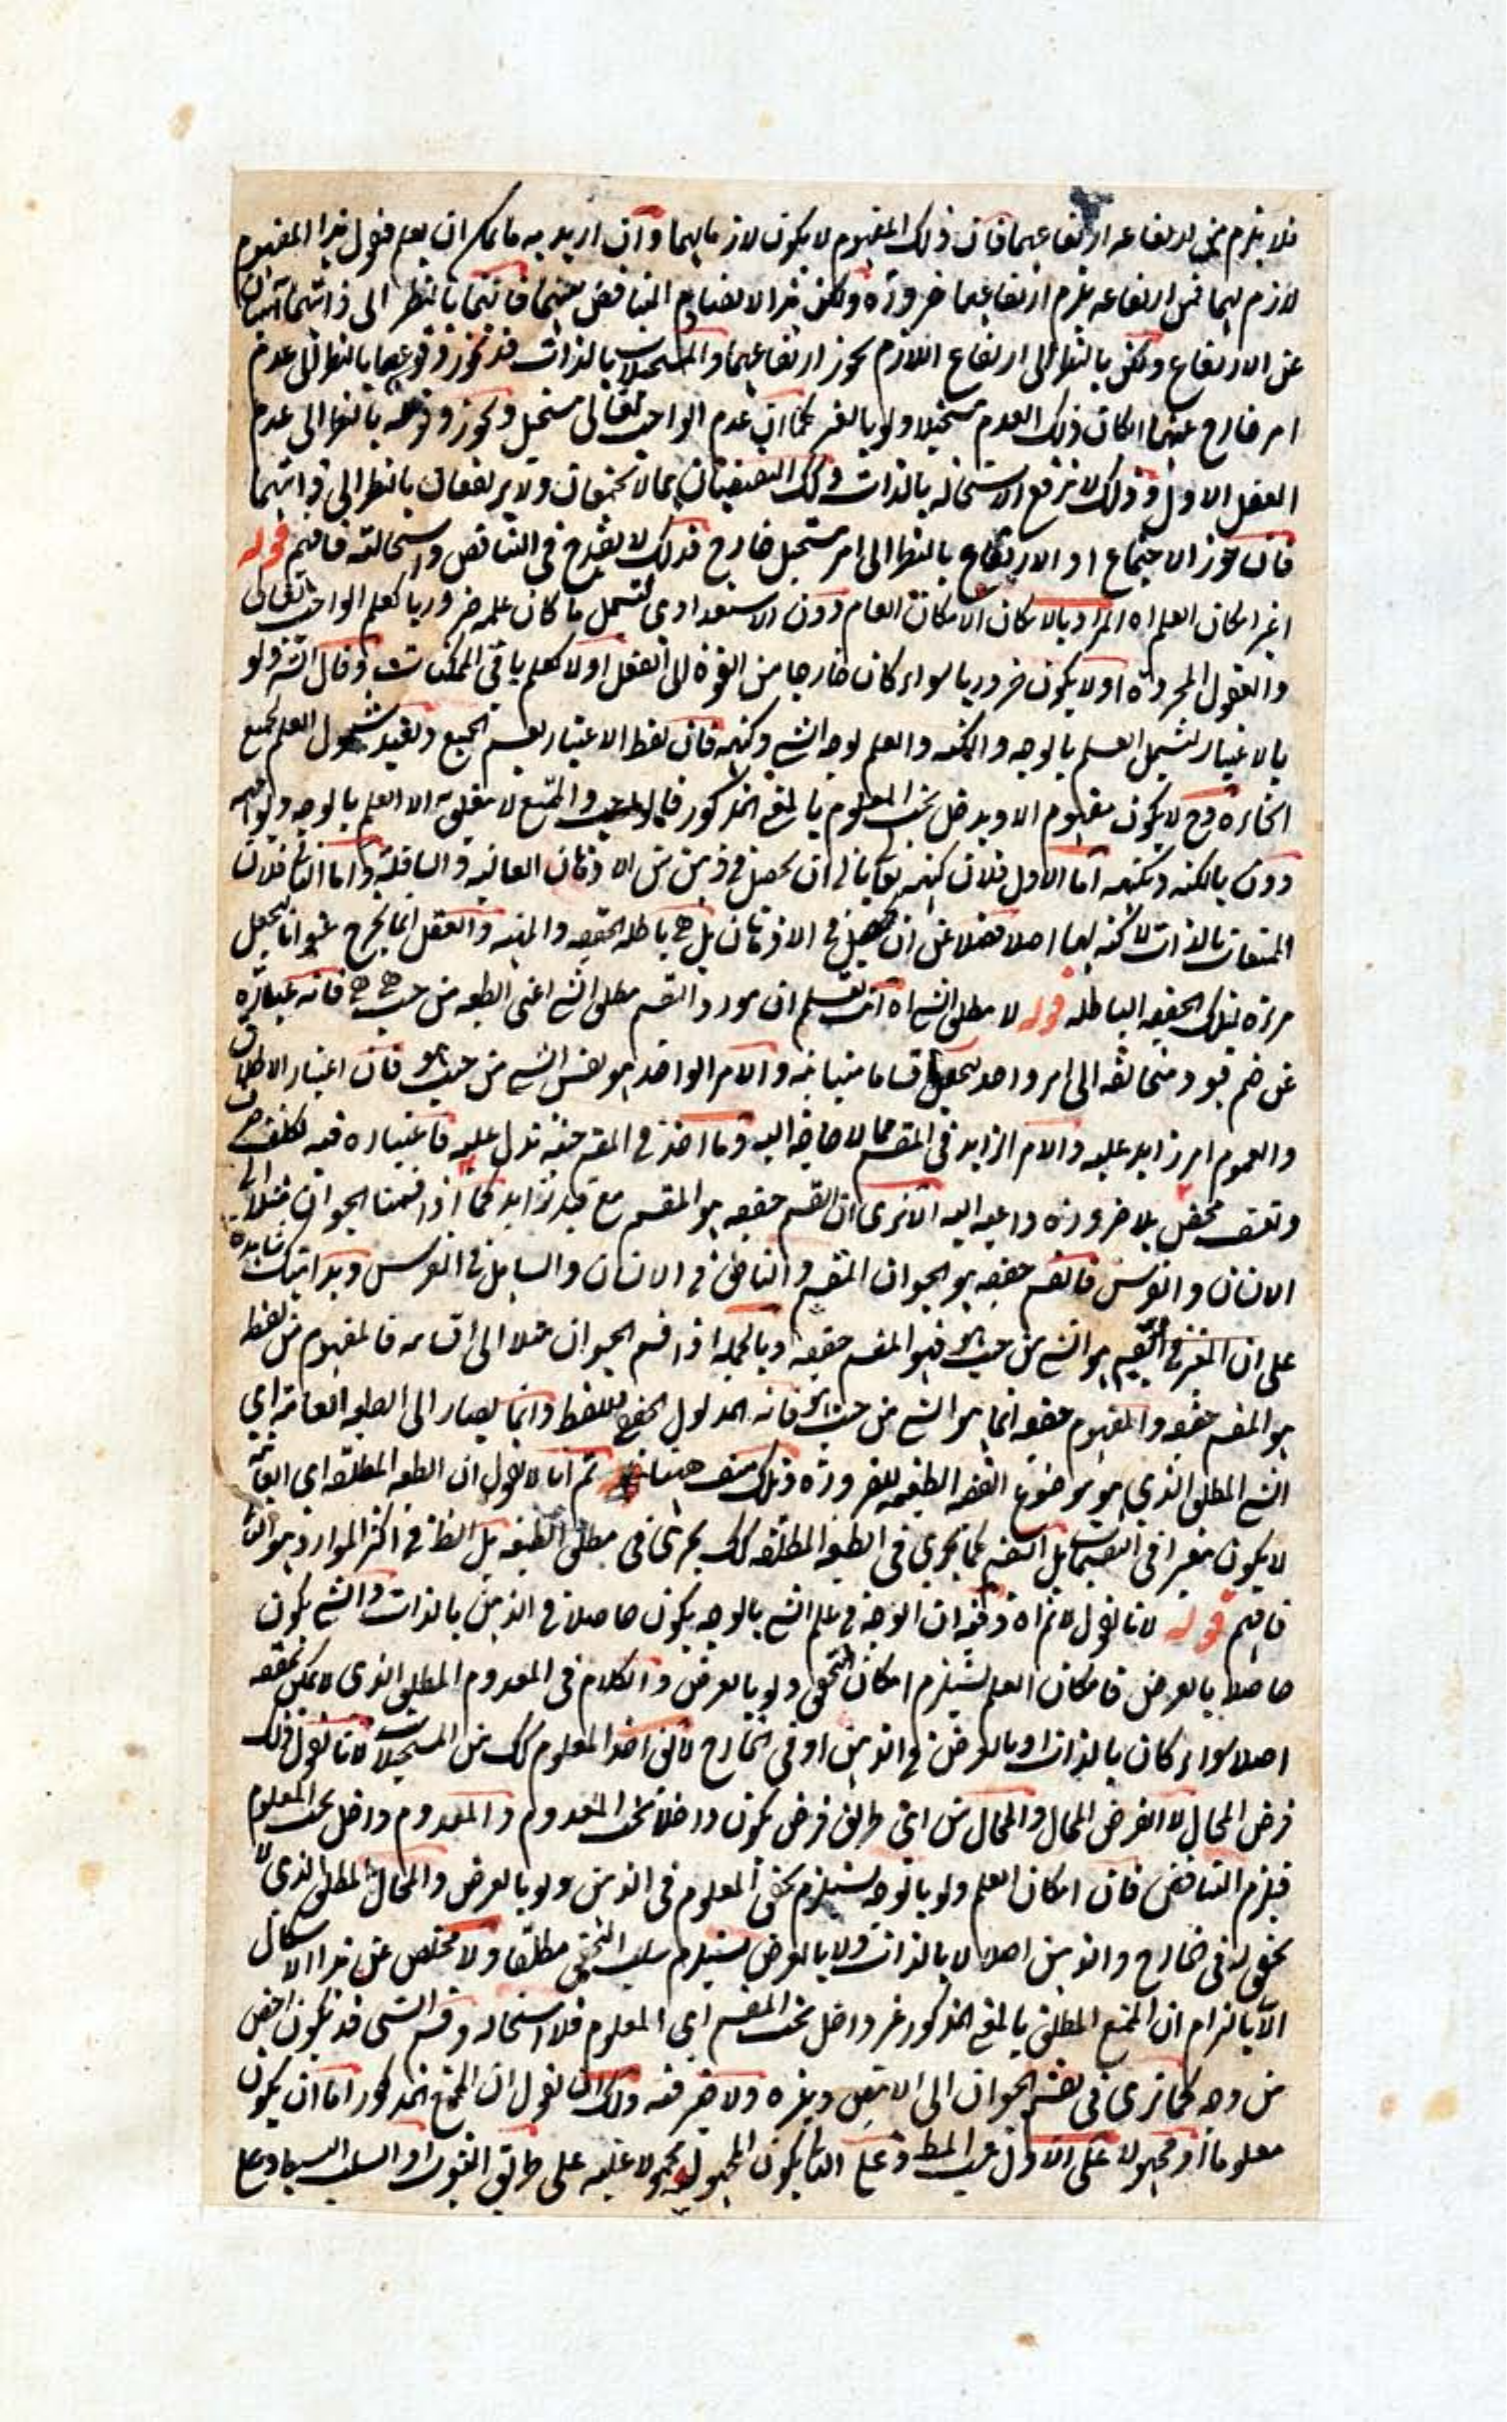 فلا يلزم من ارتفاعه ارتفاعهما فان ذلك المفهوم لا يكون لازما لهما وان اريد به ما يمكن ان يعم فنقول هذا المفهوم
لازم لهما فمن ارتفاعه يلزم ارتفاعهما ضرورة ولكن هذا لا يصادم التناقض بينهما فانهما بالنظر الى ذاتهما آبيان
عن الارتفاع ولكن بالنظر الى ارتفاع اللازم يجوز ارتفاعهما والمستحيلات بالذات قد تجوز وقوعها بالنظر الى عدم
امر خارج عنهما اذا كان ذلك العدم مستحيلا ولو بالغير كما ان عدم الواجب تعالى مستحيل ويجوز وقوعه بالنظر الى عدم
العقل الاول وذلك لا يرفع الاستحاله بالذات وكك النقيضان مما لا يجتمعان ولا يرتفعان بالنظر الى ذاتهما
فان جوز الاجتماع او الارتفاع بالنظر الى امر مستحيل خارج فذلك لا يقدح في التناقض واستحالته فافهم قوله
اعم امكان العلم اه المراد بالامكان الامكان العام دون الاستعدادى لتشمل ما كان علمه ضروريا كعلم الواجب تعالى
والعقول المجردة او لا يكون ضروريا سواء كان خارجا من القوة الى الفعل او لا كعلم باقي الممكنات وقال الش ولو
بالاعتبار ليشمل العلم بالوجه والكنه والعلم بوجه الشي وكنهه فان لفظ الاعتبار يعم الجميع ويفيد شمول العلم لجميع
انحائه وح لا يكون مفهوم الا ويدخل تحت المعلوم بالمعنى المذكور فالواجب والممتنع لا يتعلق به الا العلم بالوجه ولوجهه
دون بالكنه وبكنهه اما الاول فلان كنهه تعالى يابى ان يحصل في ذهن من الاذهان العاليه والسافلة واما الثاني فلان
الممتنعات بالذات لا كنه لها اصلا فضلا عن ان يحصل في الاذهان بل هي باطله الحقيقه والمهيه والعقل انما يخرج عنوانا يجعل
مرآة لتلك الحقيقه الباطله قوله لا مطلق الشي اه انت تعلم ان مورد القسم مطلق الشي اعنى الطبيعه من حيث هي هي فانه عبارة
عن ضم قيود متخالفه الى امر واحد ليحصل اقساما متباينه والامر الواحد هو نفس الشي من حيث هو فان اعتبار الاطلاق
والعموم امر زايد عليه والامر الزايد في المقسم مما لا حاجة اليه وما اخذ في المقسم حقيقة تدل عليه فاعتباره فيه تكلف صرف
وتعسف محض بلا ضرورة داعيه اليه الا ترى ان القسم حقيقه هو المقسم مع قيد زايد كما اذا قسمنا الحيوان مثلا الى
الانسان والفرس فالقسم حقيقه هو الحيوان المقسم والناطق في الانسان والصاهل في الفرس وبدايتك شاهدة
على ان المعتبر في التقسيم هو الشي من حيث هو فهو المقسم حقيقه وبالجمله اذا قسم الحيوان مثلا الى اقسامه فالمفهوم من لفظه
هو المقسم حقيقه والمفهوم حقيقه انما هو الشي من حيث هو فانه المدلول الحقيقي للفظ وانما يصار الى الطبيعه العامه اي
الشي المطلق الذي هو موضوع القضيه الطبيعيه للضرورة وذلك منتف ههنا ثم انا لا نقول ان الطبيعه المطلقه اي العامة
لا يكون معتبرا في التقسيمات بل التقسيم كما يجري في الطبيعه المطلقه كك يجري في مطلق الطبيعه بل الظ في اكثر الموارد هو الثاني
فافهم قوله لانا نقول لا نم اه وفيه ان الوجه في علم الشي بالوجه يكون حاصلا في الذهن بالذات والشي يكون
حاصلا بالعرض فامكان العلم يستلزم امكان التحقق ولو بالعرض والكلام في المعدوم المطلق الذي لا يمكن تحققه
اصلا سواء كان بالذات او بالعرض في الذهن او في الخارج لا يق اخذ المعلوم كك من المستحيلات لانا نقول ذلك
فرض المحال لا الفرض المحال والمحال من اى طريق فرض يكون داخلا تحت المعدوم والمعدوم داخل تحت المعلوم
فيلزم التناقض فان امكان العلم ولو بالوجه يستلزم تحقق المعلوم في الذهن ولو بالعرض والمحال المطلق الذي لا
تحقق له في الخارج والذهن اصلا لا بالذات ولا بالعرض يستلزم سلب التحقق مطلقا ولا مخلص عن هذا الاشكال
الا بالتزام ان الممتنع المطلق بالمعنى المذكور غير داخل تحت المقسم اي المعلوم فلا استحاله وقسم الشي قد يكون اخص
من وجه كما ترى في تقسيم الحيوان الى الابيض وغيره ولا ضير فيه ولك ان تقول ان الممتنع المذكور اما ان يكون
معلوما او مجهولا على الاول ثبت المط وعلى الثاني يكون المجهول محمولا عليه على طريق الثبوت او السلب البسيط وعلى